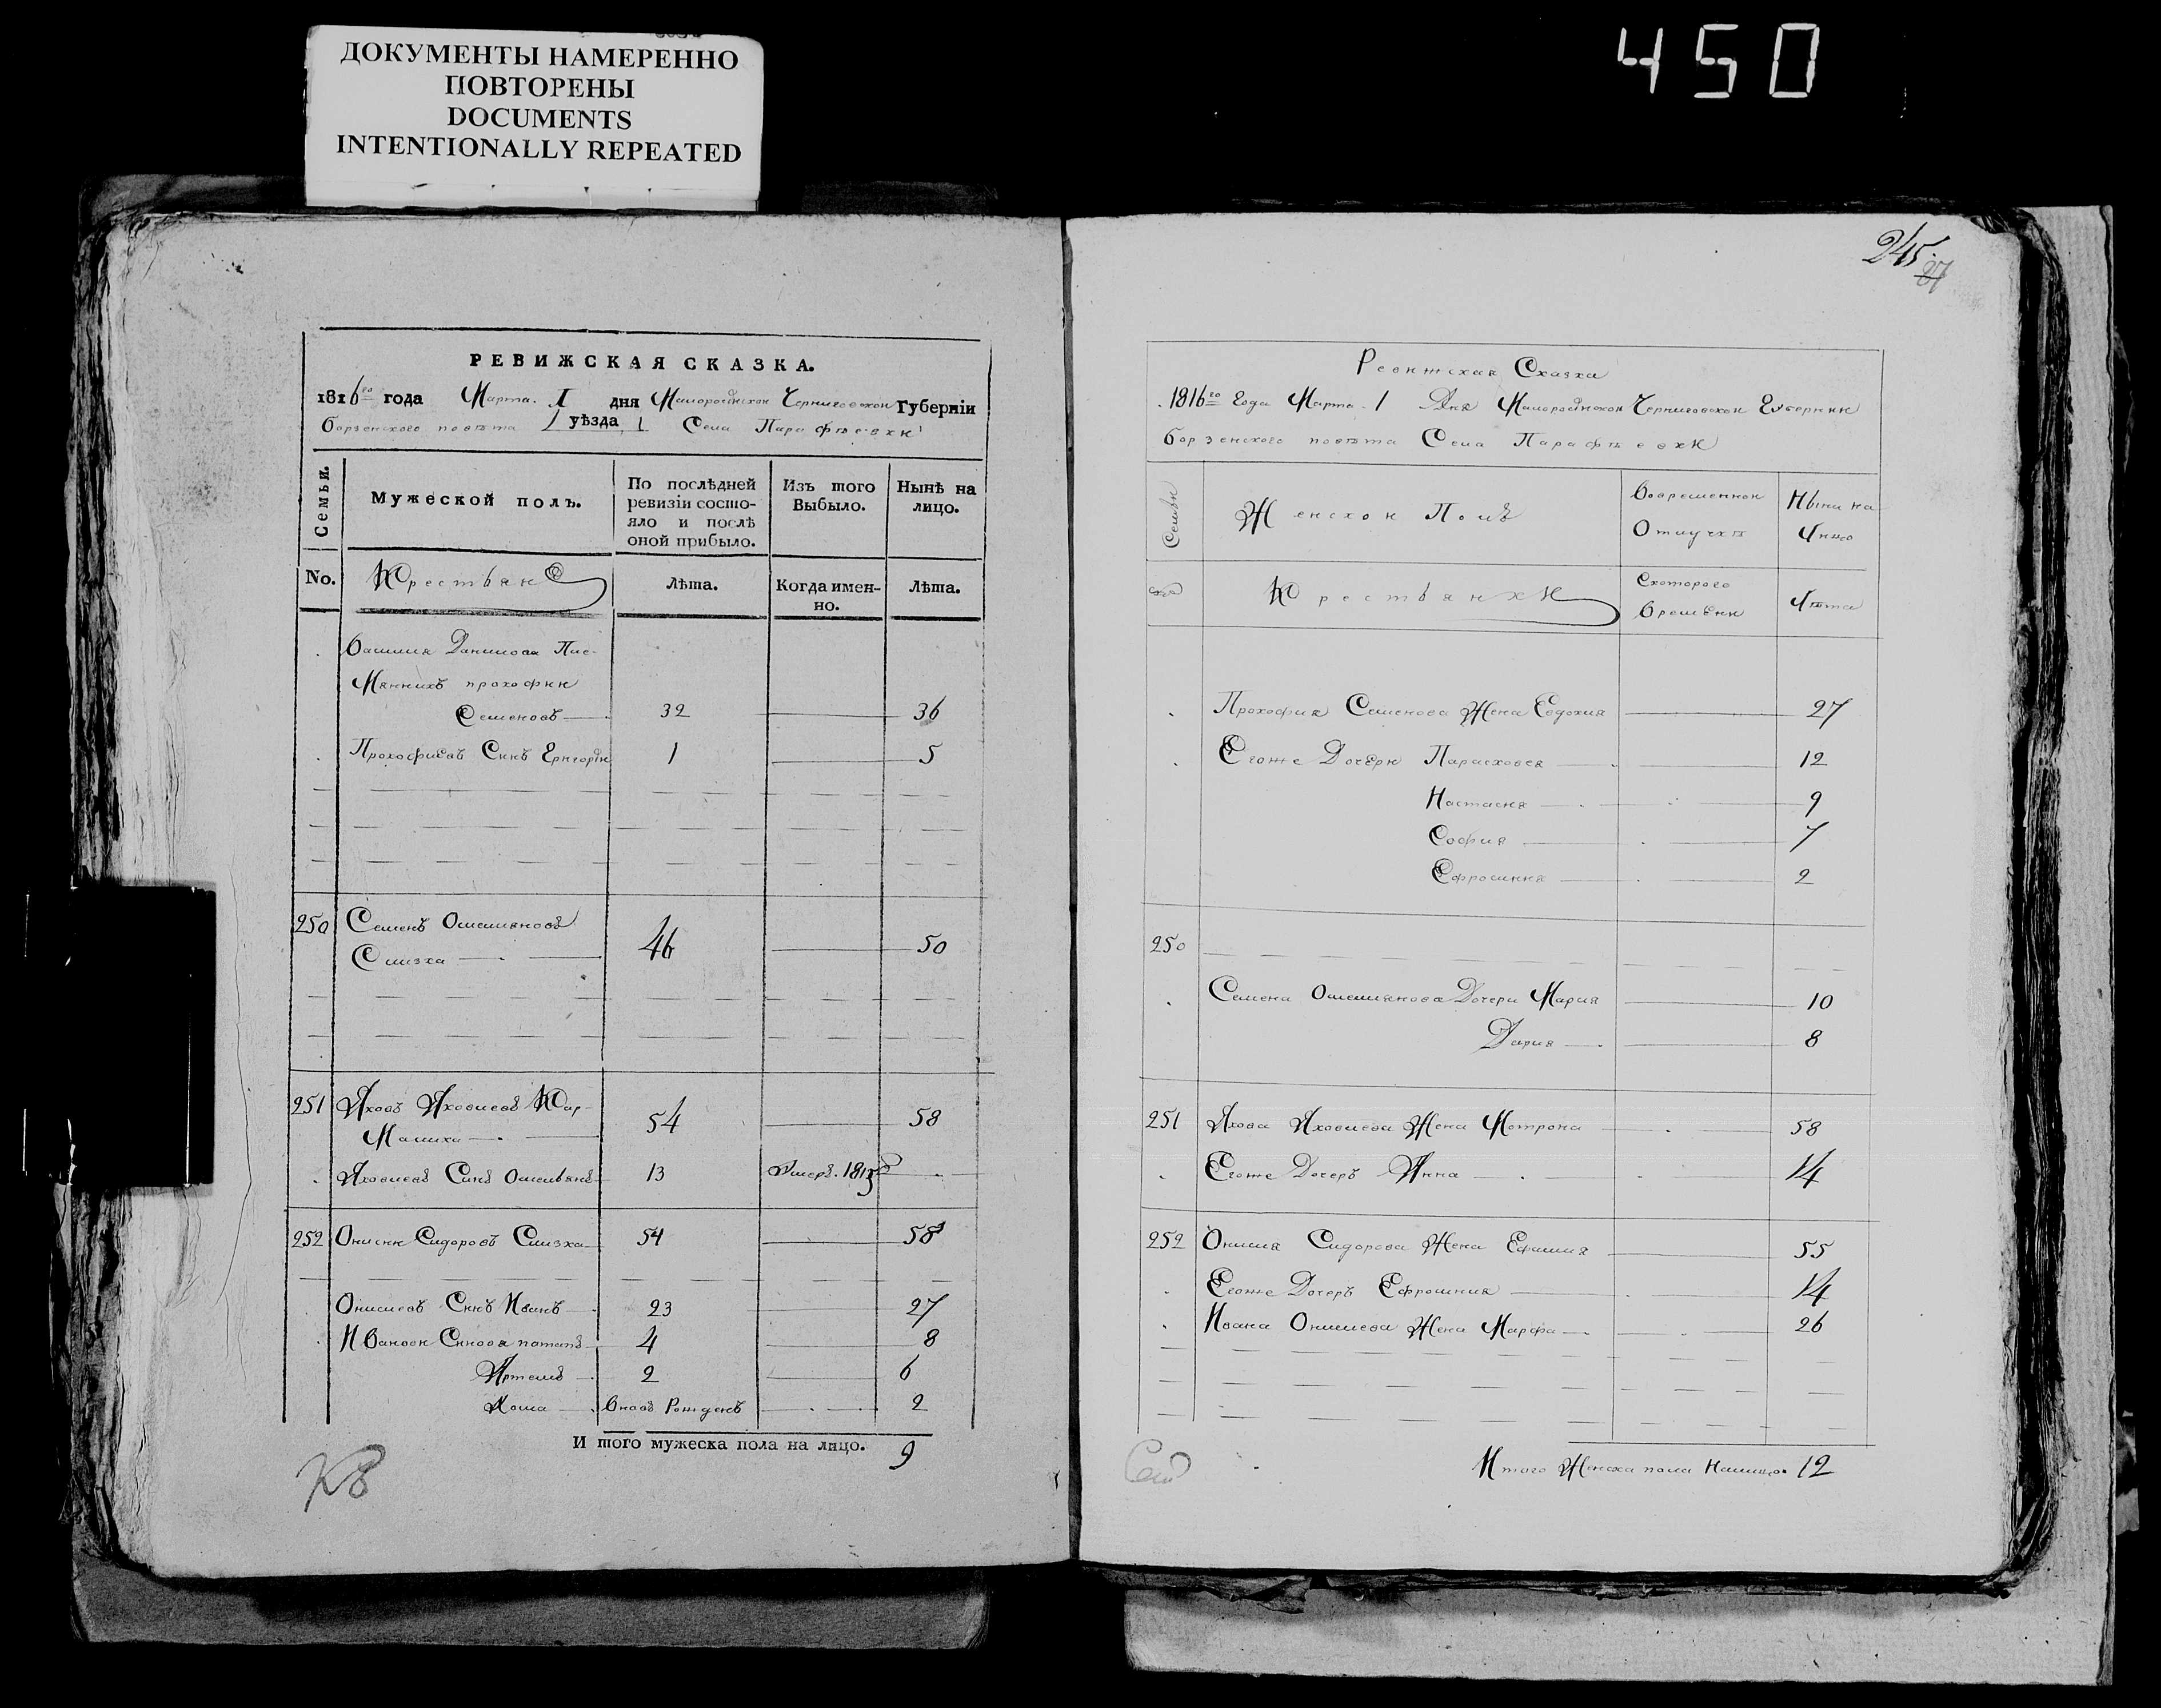 ДОКУМЕНТЫ НАМЕРЕННО
ПОВТОРЕНЫ
DOCUMENTS
INTENTIONALLY REPEATED
450
245
27
РЕВИЖСКАЯ СКАЗКА.
1816го года Марта 1 дня Малоросійской Черниговской Губерніи
борзенского повѣта уѣзда Села Парафѣевки
Семьи.
Мужеской полъ.
По послѣдней ревизіи состо-
яло и послѣ
оной прибыло.
Изъ того
Выбыло.
Нынѣ на
лицо.
No.
Крестьяне
Лѣта.
Когда имен-
но.
Лѣта.
Василия Данилова Пис-
Менникъ прокофии
Семеновъ 32 36
Прокофиевъ Синъ Григорій 1 5
250 Семенъ Омеляновъ
Слизка 46 50
251 Яковъ Яковлевъ Кар-
Малика 54 58
Яковлевъ Синъ Омельянъ 13 Умеръ 1813
252 Онисии Сидоровъ Слизка 54 58
Онисиевъ Синъ Иванъ 23 27
Ивановы Синовя потапъ 4 8
Артемъ 2 6
Хома вновь Рожденъ 2
И того мужеска пола на лицо. 9
Ревижская Сказка
1816го Года Марта 1 Дня Малоросійской Черниговской Губернии
борзенского повѣта Села Парафѣевки
Семьи
Женской Полъ
Вовременной
Отлучкѣ
Ныни на
Лицо
Крестьянки
Скоторого
Времени
Лѣта
Прокофия Семенова Жена Евдокия 27
Егоже Дочери Парасковея 12
Настасия 9
София 7
Ефросиния 2
250
Семена Омелянова Дочери Мария 10
Дария 8
251 Якова Яковлева Жена Мотрона 58
Егоже Дочеръ Анна 14
252 Онисия Сидорова Жена Ефимия 55
Егоже Дочеръ Ефросиния 14
Ивана Онисиева Жена Марфа 26
Итого Женска пола Налицо 12